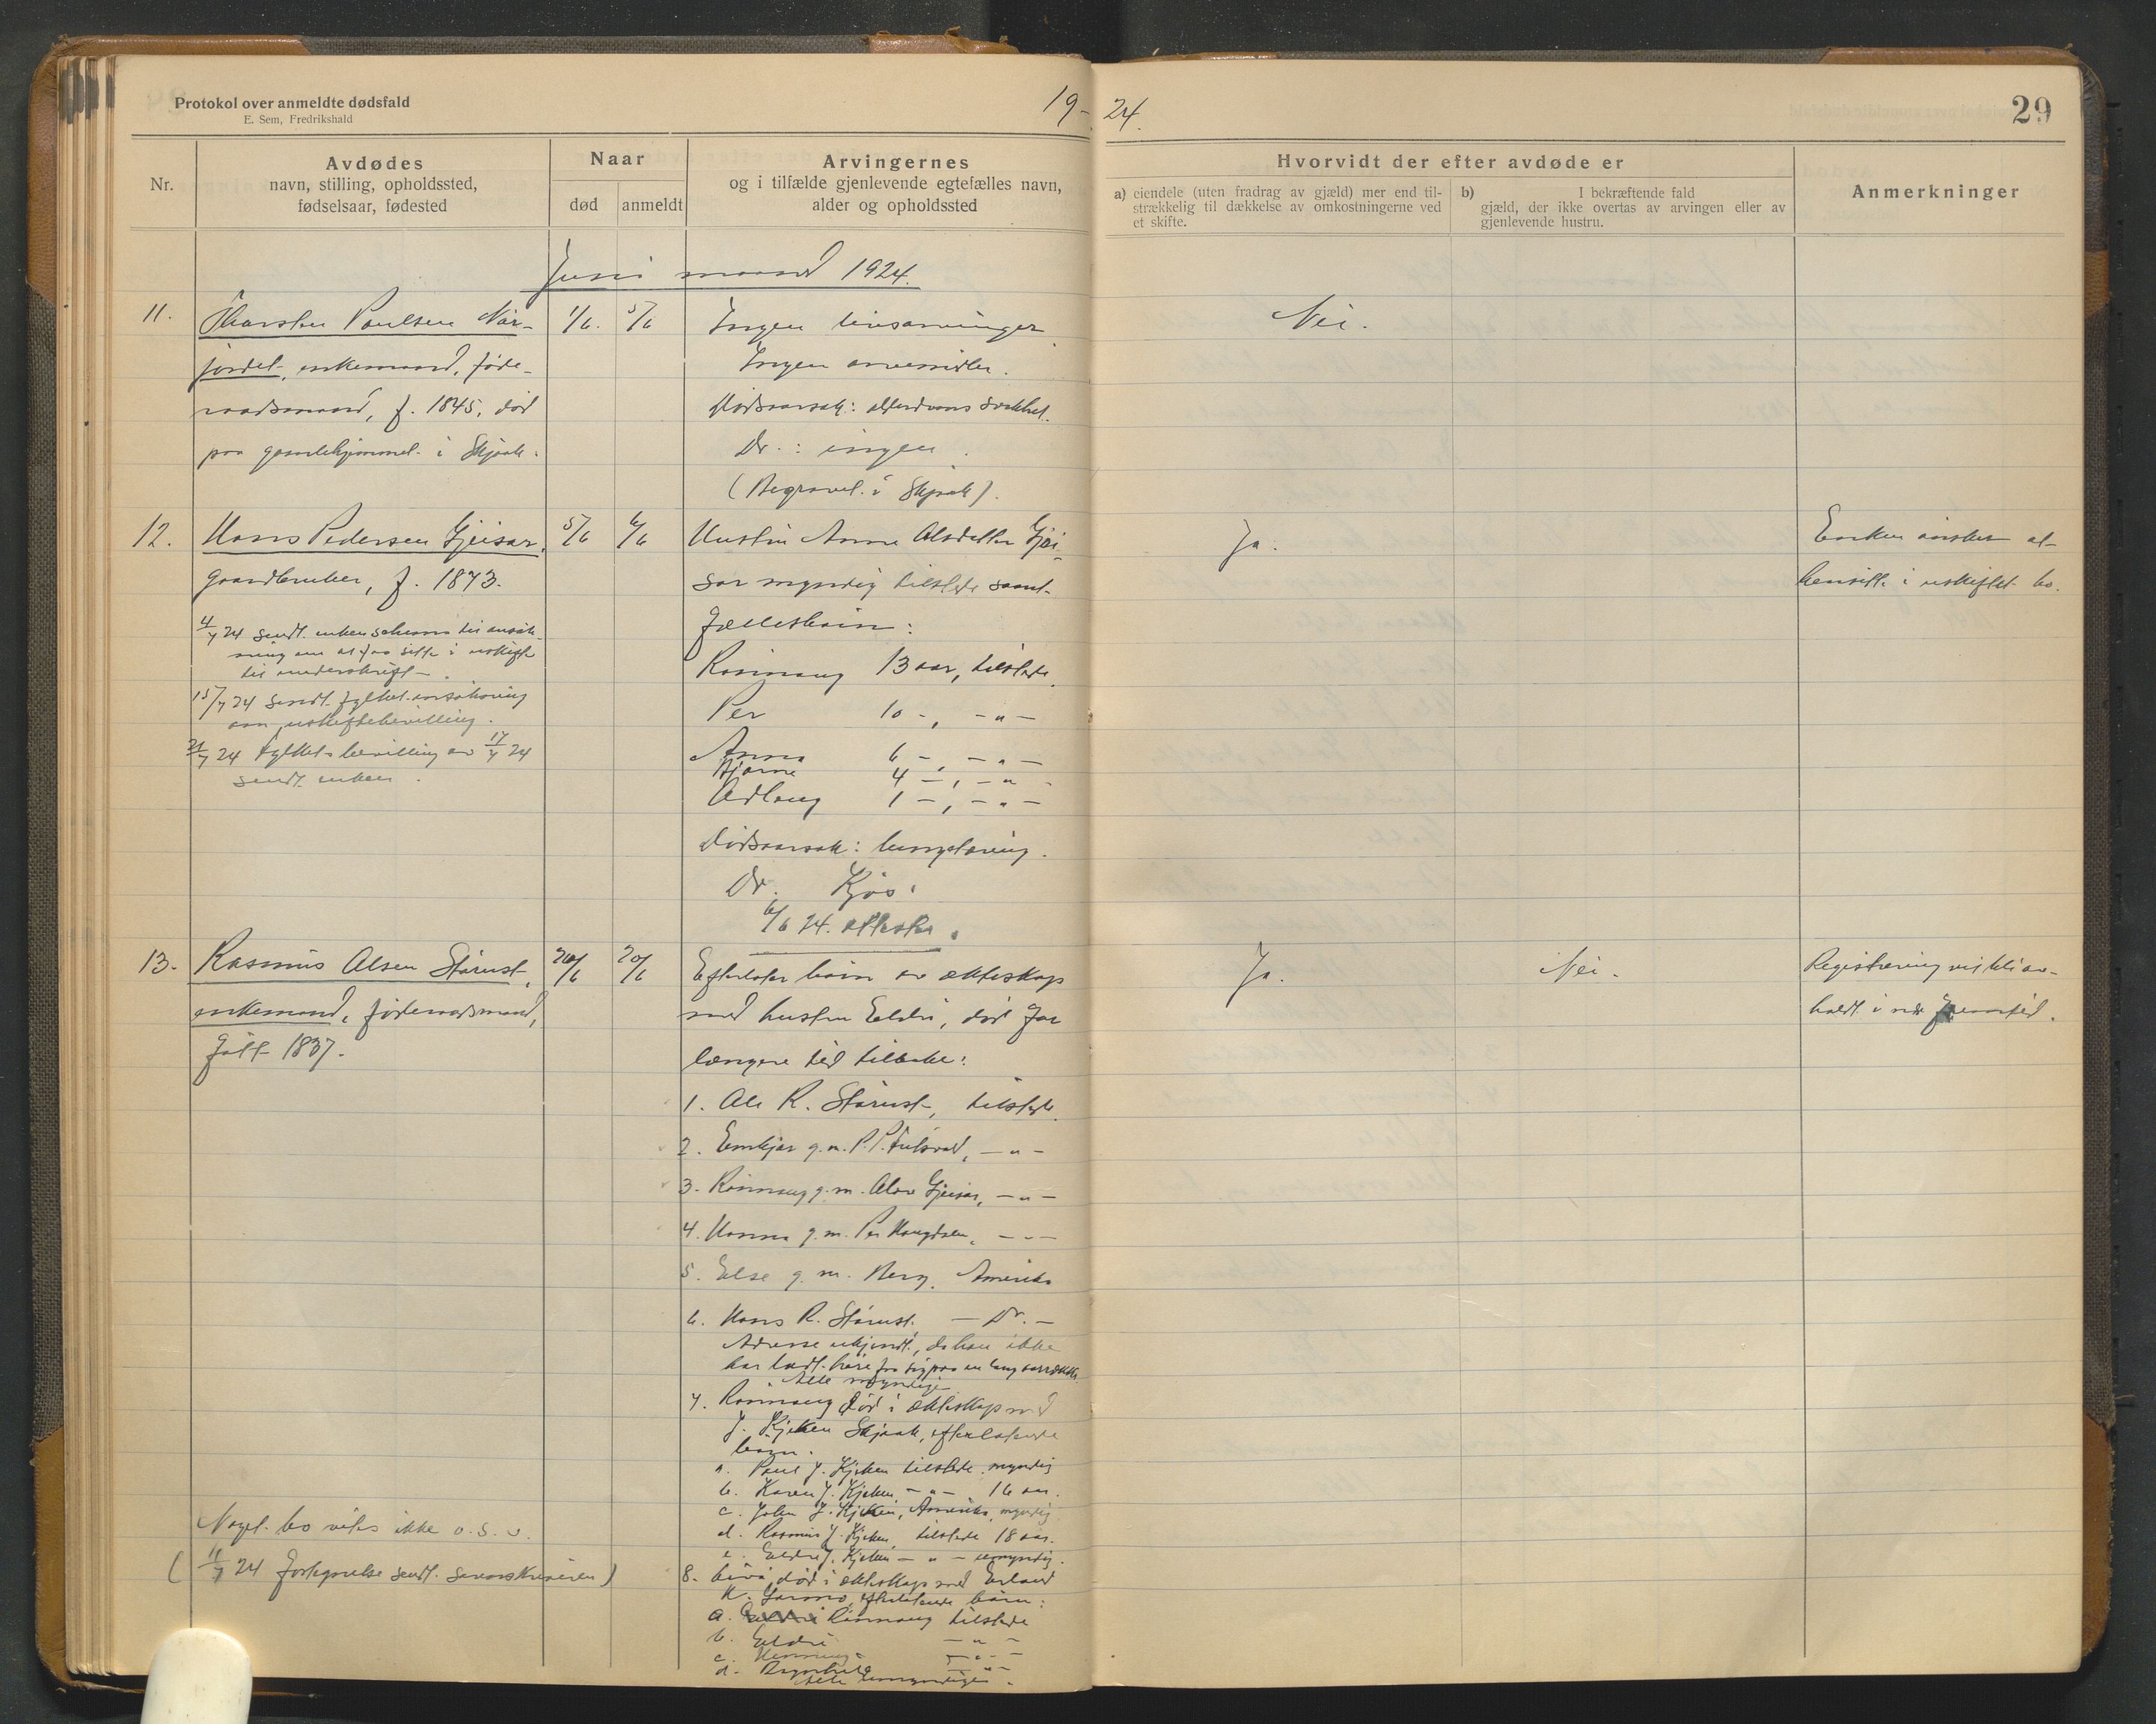 Protokol over anmeldte dødsfald
E. Sem, Fredrikshald
19-24.
29
Nr.
Avdødes
navn, stilling, opholdssted,
fødselsaar, fødested
Naar
død
anmeldt
Arvingernes
og i tilfælde gjenlevende egtefælles navn,
alder og opholdssted
Hvorvidt der efter avdøde er
a) eiendele (uten fradrag av gjæld) mer end til-
strækkelig til dækkelse av omkostningerne ved
et skifte.
b) I bekræftende fald
gjæld, der ikke overtas av arvingen eller av
gjenlevende hustru.
Anmerkninger
Juni maaned 1924.
11.
Thorsten Paulsen Nør-
jordet, enkemand, føde-
raadsmand, f. 1845, død
paa gamlehjemmet i Skjaak.
1/6.
5/6
Ingen livsarvinger
Ingen arvemidler.
Dødsaarsak: alderdomssvakhet.
Dr.: ingen.
(Begravet i Skjaak).
Nei.
12.
Hans Pedersen Gjeisar,
gaardbruker, f. 1873.
4/7 24 sendt enken schema til ansøk-
ning om at faa sitte i uskifte
til underskrift.
15/7 24 sendt fylket ansøkning
om uskiftebevilling.
21/7 24 fylkets bevilling av 17/7 24
sendt enken.
5/6
6/6
Hustru Anne Olsdatter Gjei-
sar myndig tilstede samt
fællesbarn:
Rønnaug 13 aar, tilstede.
Per 10 -, - " -
Anna 6 -, - " -
Bjarne 4 -, - " -
Odlaug 1 -, - " -
Dødsaarsak: lungetæring.
Dr. Kjøs.
6/6 24. attester.
Ja.
Enken ønsker at
hensitte i uskiftet bo.
13.
Rasmus Olsen Størust,
enkemand, føderaadsmand,
født 1837.
20/6
20/6
Efterlater barn av ekteskap
med hustru Eldri, død for
længere tid tilbake:
1. Ole R. Størust, tilstede.
2. Embjør g.m. P. P. - " -
3. Rønnaug g.m. Olav Gjeisar, - " -
4. Hanna g.m. Per Haugdalen, - " -
5. Else g.m. Berg, Amerika
6. Hans R. Størust. - Do. -
Adresse ukjendt, da han ikke
har latt høre fra sig paa en lang aarrække.
Alle myndige
7. Rønnaug død i ekteskap med
J. Kjeken Skjaak, efterlatende
barn.
a. Paul J. Kjeken tilstede myndig
b. Karen J. Kjeken - " - 16 aar.
c. John J. Kjeken, Amerika, myndig
d. Rasmus J. Kjeken, tilstede 18 aar.
e. Eldri J. Kjeken - " - umyndig.
8. død i ekteskap med Erland
K. Garmo, efterlatende barn:
a. Rønnaug tilstede
b. Eldri - " -
c. - " -
d. Ragnhild - " -
Alle umyndige.
Ja.
Nei.
Registrering vil bli av-
holdt i nær fremtid.
Nogel. bo vites ikke o.s.v.
( 11/7 24 fortegnelse sendt sorenskriveren )